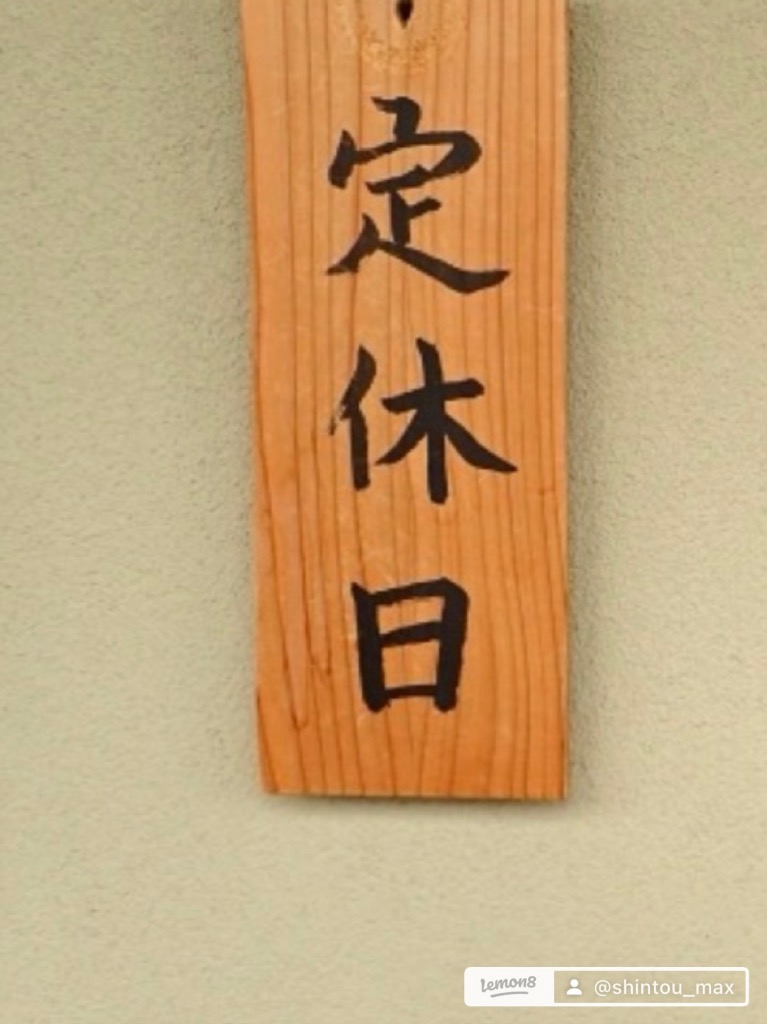 定休日
lemon8 @shintou_max